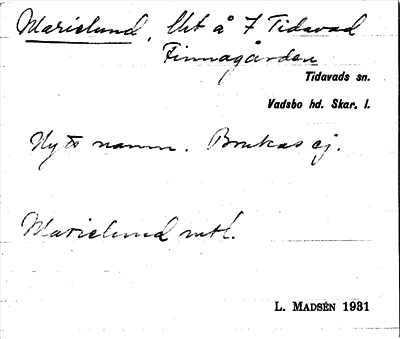 Marielund, Lht å 7 Tidavad
Finnagården
Tidavads sn.
Vadsbo hd. Skar. l.
Nytt namn. Brukas ej.
Marielund mtl.
L. MADSÉN 1931